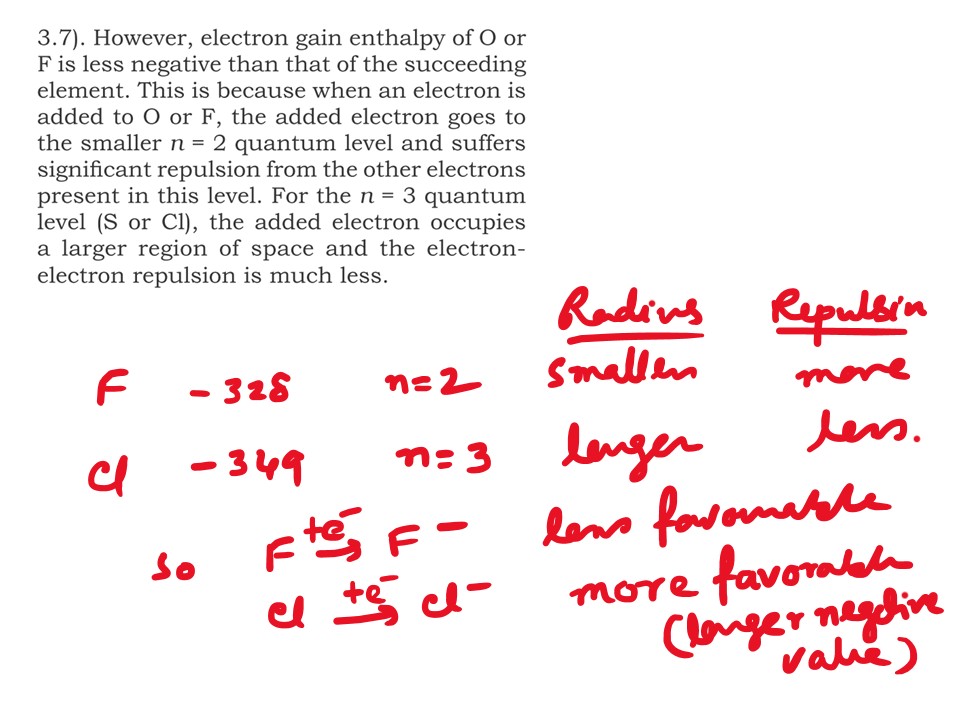 3.7). However, electron gain enthalpy of O or
F is less negative than that of the succeeding
element. This is because when an electron is
added to O or F, the added electron goes to
the smaller n = 2 quantum level and suffers
significant repulsion from the other electrons
present in this level. For the n = 3 quantum
level (S or Cl), the added electron occupies
a larger region of space and the electron-
electron repulsion is much less.
Radius Repulsin
F - 328 n=2 smaller more
Cl - 349 n=3 larger less.
so F +e⁻→ F⁻ less favourable
Cl +e⁻→ Cl⁻ more favorable
(larger negative
value)